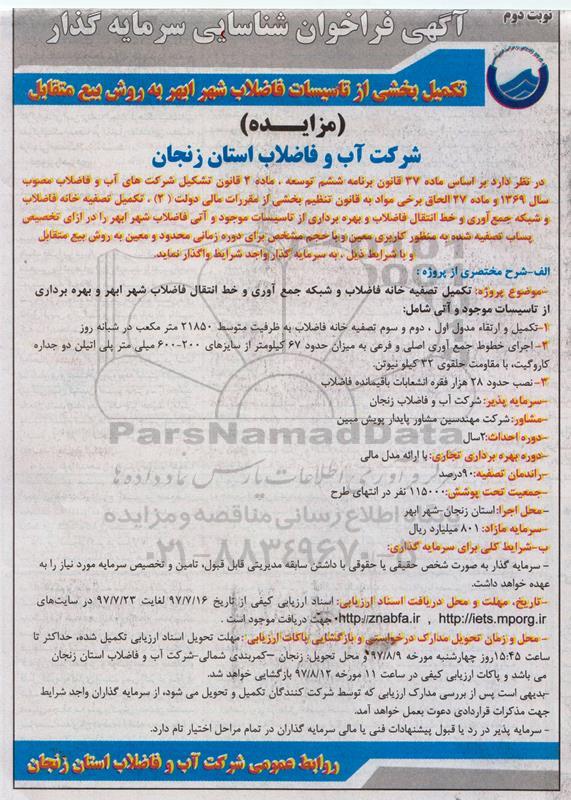 نوبت دوم
آگهی فراخوان شناسایی سرمایه گذار
تکمیل بخشی از تاسیسات فاضلاب شهر ابهر به روش بیع متقابل
(مزایـــده)
شرکت آب و فاضلاب استان زنجان
در نظر دارد بر اساس ماده ۳۷ قانون برنامه ششم توسعه ، ماده ۲ قانون تشکیل شرکت های آب و فاضلاب مصوب
سال ۱۳۶۹ و ماده ۲۷ الحاق برخی مواد به قانون تنظیم بخشی از مقررات مالی دولت ( ۲) ، تکمیل تصفیه خانه فاضلاب
و شبکه جمع‌آوری و خط انتقال فاضلاب و بهره برداری از تاسیسات موجود و آتی فاضلاب شهر ابهر را در ازای تخصیص
پساب تصفیه شده به منظور کاربری معین و با حجم مشخص برای دوره زمانی محدود و معین به روش بیع متقابل
و با شرایط ذیل ، به سرمایه گذار واجد شرایط واگذار نماید.
الف-شرح مختصری از پروژه :
-موضوع پروژه: تکمیل تصفیه خانه فاضلاب و شبکه جمع آوری و خط انتقال فاضلاب شهر ابهر و بهره برداری
از تاسیسات موجود و آتی شامل:
۱-تکمیل و ارتقاء مدول اول ، دوم و سوم تصفیه خانه فاضلاب به ظرفیت متوسط ۲۱۸۵۰ متر مکعب در شبانه روز
۲- اجرای خطوط جمع آوری اصلی و فرعی به میزان حدود ۶۷ کیلومتر از سایزهای ۲۰۰-۶۰۰ میلی متر پلی اتیلن دو جداره
کاروگیت، با مقاومت حلقوی ۳۲ کیلو نیوتن.
۳-نصب حدود ۲۸ هزار فقره انشعابات باقیمانده فاضلاب
-سرمایه پذیر: شرکت آب و فاضلاب زنجان
-مشاور: شرکت مهندسین مشاور پایدار پویش مبین
-دوره احداث:۲سال
-دوره بهره برداری تجاری: با ارائه مدل مالی
-راندمان تصفیه:۹۰درصد
-جمعیت تحت پوشش: ۱۱۵۰۰۰ نفر در انتهای طرح
-محل اجرا: استان زنجان-شهر ابهر
-سرمایه مازاد: ۸۰۱ میلیارد ریال
ب-شرایط کلی برای سرمایه گذاری:
- سرمایه گذار به صورت شخص حقیقی یا حقوقی با داشتن سابقه مدیریتی قابل قبول، تامین و تخصیص سرمایه مورد نیاز را به
عهده خواهد داشت.
-تاریخ، مهلت و محل دریافت اسناد ارزیابی: اسناد ارزیابی کیفی از تاریخ ۹۷/۷/۱۶ لغایت ۹۷/۷/۲۳ در سایت‌های
http://iets.mporg.ir , http://znabfa.ir جهت دریافت موجود است .
-محل و زمان تحویل مدارک درخواستی و بازگشایی پاکات ارزیابی : مهلت تحویل اسناد ارزیابی تکمیل شده، حداکثر تا
ساعت ۱۵:۴۵روز چهارشنبه مورخه ۹۷/۸/۹ و محل تحویل: زنجان –کمربندی شمالی-شرکت آب و فاضلاب استان زنجان
می باشد و پاکات ارزیابی کیفی در ساعت ۱۱ مورخه ۹۷/۸/۱۲ بازگشایی خواهد شد.
-بدیهی است پس از بررسی مدارک ارزیابی که توسط شرکت کنندگان تکمیل و تحویل می شود، از سرمایه گذاران واجد شرایط
جهت مذاکرات قراردادی دعوت بعمل خواهد آمد.
- سرمایه پذیر در رد یا قبول پیشنهادات فنی یا مالی سرمایه گذاران در تمام مراحل اختیار تام دارد.
روابط عمومی شرکت آب و فاضلاب استان زنجان
ParsNamadData
گردآوری اطلاعات پارس نماد داده‌ها
اطلاع رسانی مناقصه و مزایده
۰۲۱-۸۸۳۴۹۶۷۰